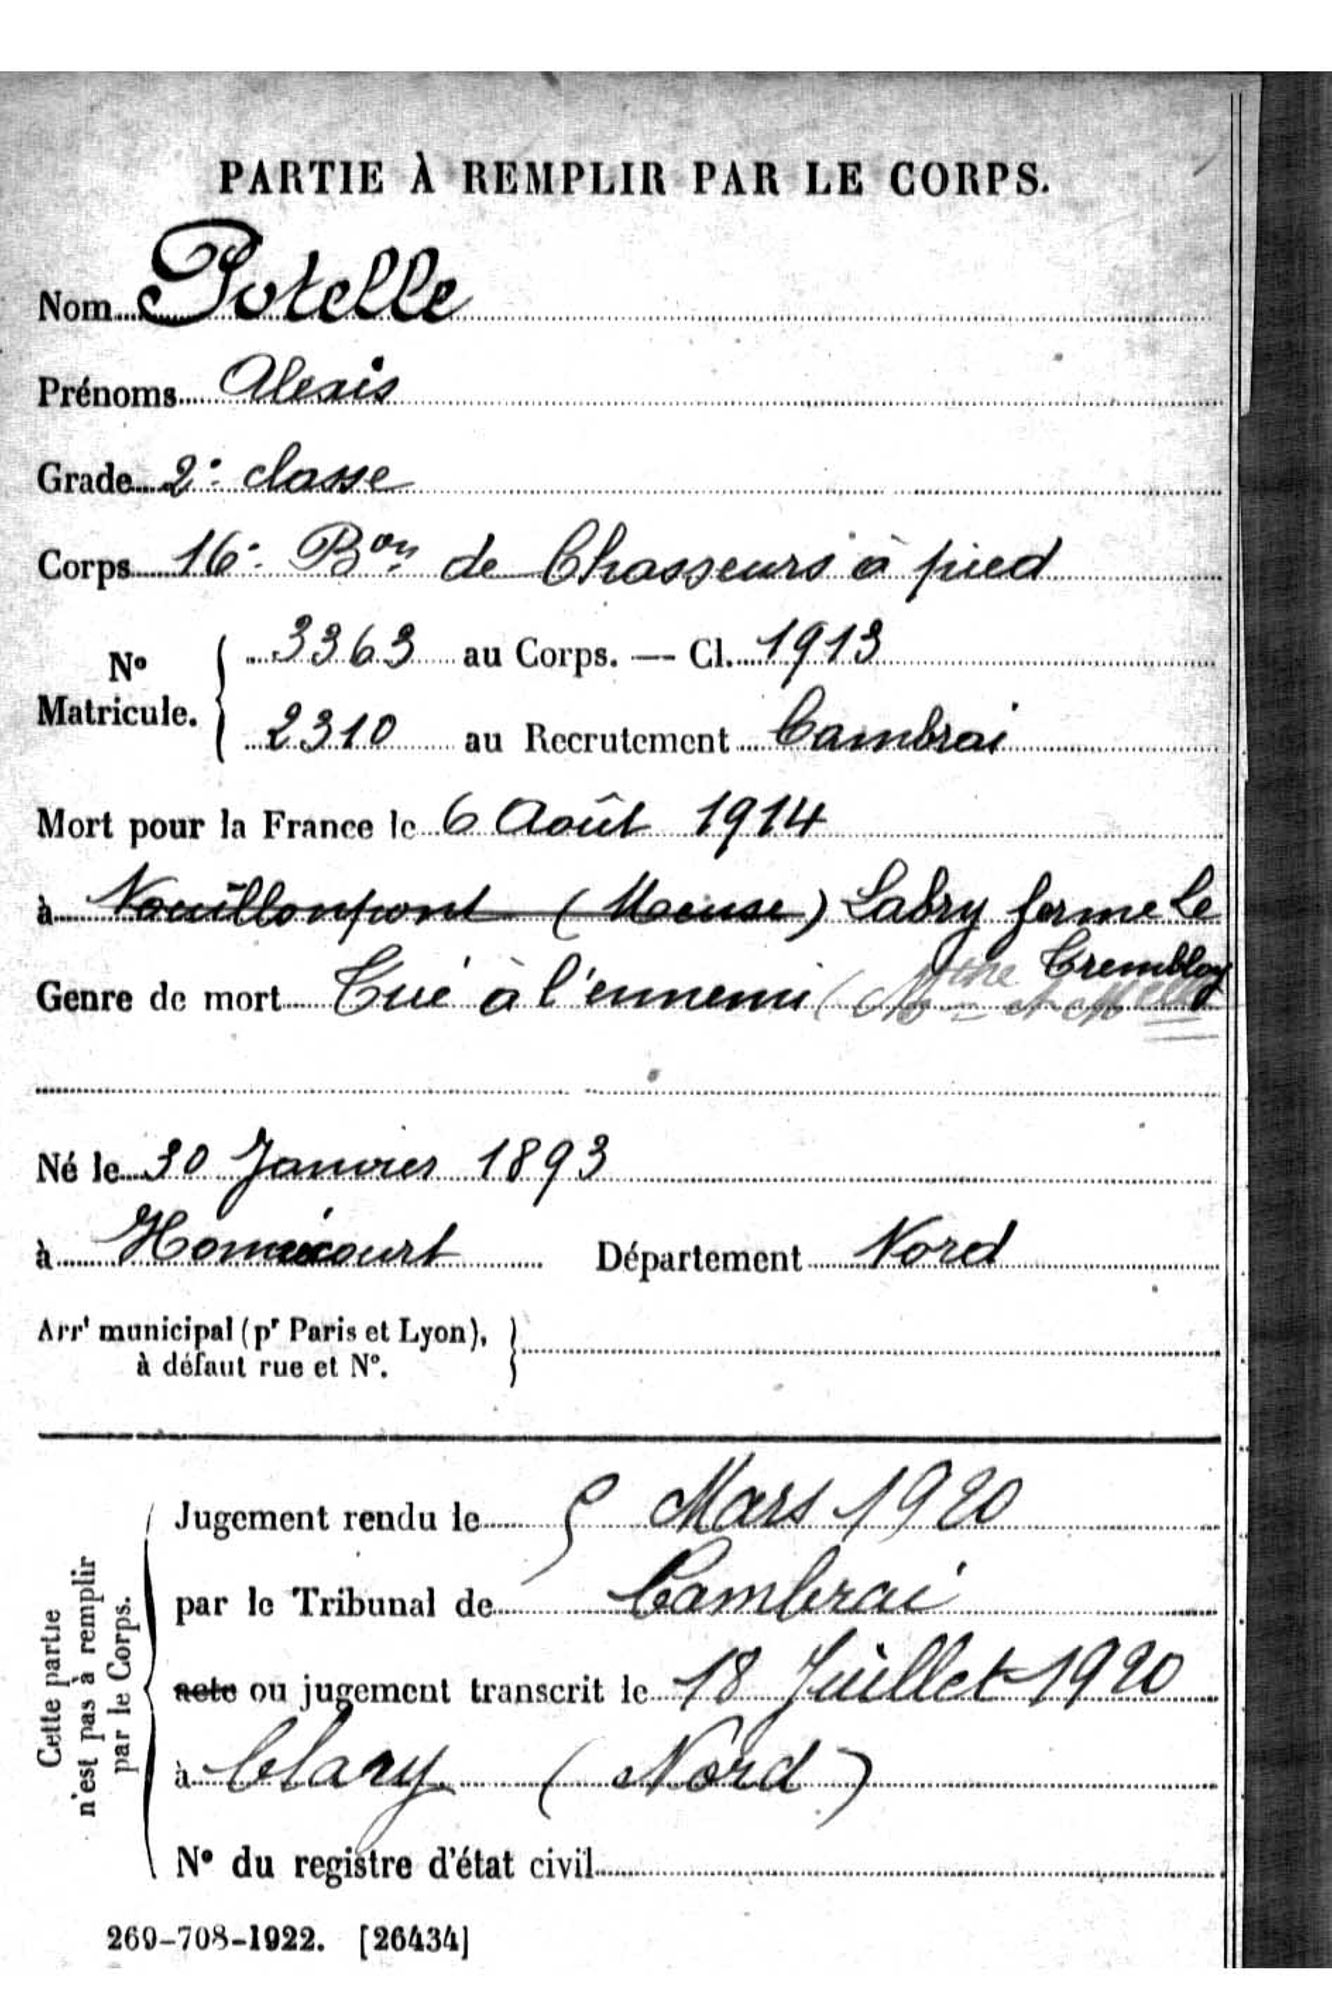 PARTIE À REMPLIR PAR LE CORPS.
Nom Potelle
Prénoms Alexis
Grade 2e classe
Corps 16e Bon de Chasseurs à pied
No Matricule. 3363 au Corps. — Cl. 1913
2310 au Recrutement Cambrai
Mort pour la France le 6 Août 1914
à Nouillonpont (Meuse) Labry ferme Le
Trembloy
Genre de mort Tué à l'ennemi
Né le 30 Janvier 1893
à Honnecourt Département Nord
Arrt municipal (pr Paris et Lyon),
à défaut rue et No.
Cette partie
n'est pas à remplir
par le Corps.
Jugement rendu le 5 Mars 1920
par le Tribunal de Cambrai
acte ou jugement transcrit le 18 Juillet 1920
à Clary (Nord)
No du registre d'état civil
269-708-1922. [26434]